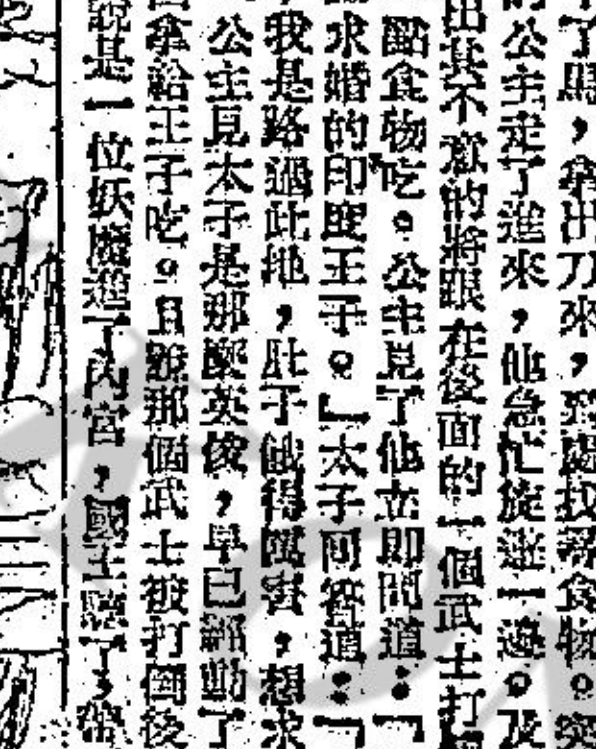 了馬，拿出刀來，到處找尋食物。突
公主走了進來，他急忙旋避一邊。及
出其不意的將跟在後面的一個武士打
點食物吃。公主見了他立即問道：「
求婚的印度王子。」太子回答道：「
我是路過此地，肚子餓得厲害，想求
公主見太子是那麼英俊，早已經動了
拿給王子吃。且說那個武士被打倒後
說是一位妖魔進了內宮，國王聽了，